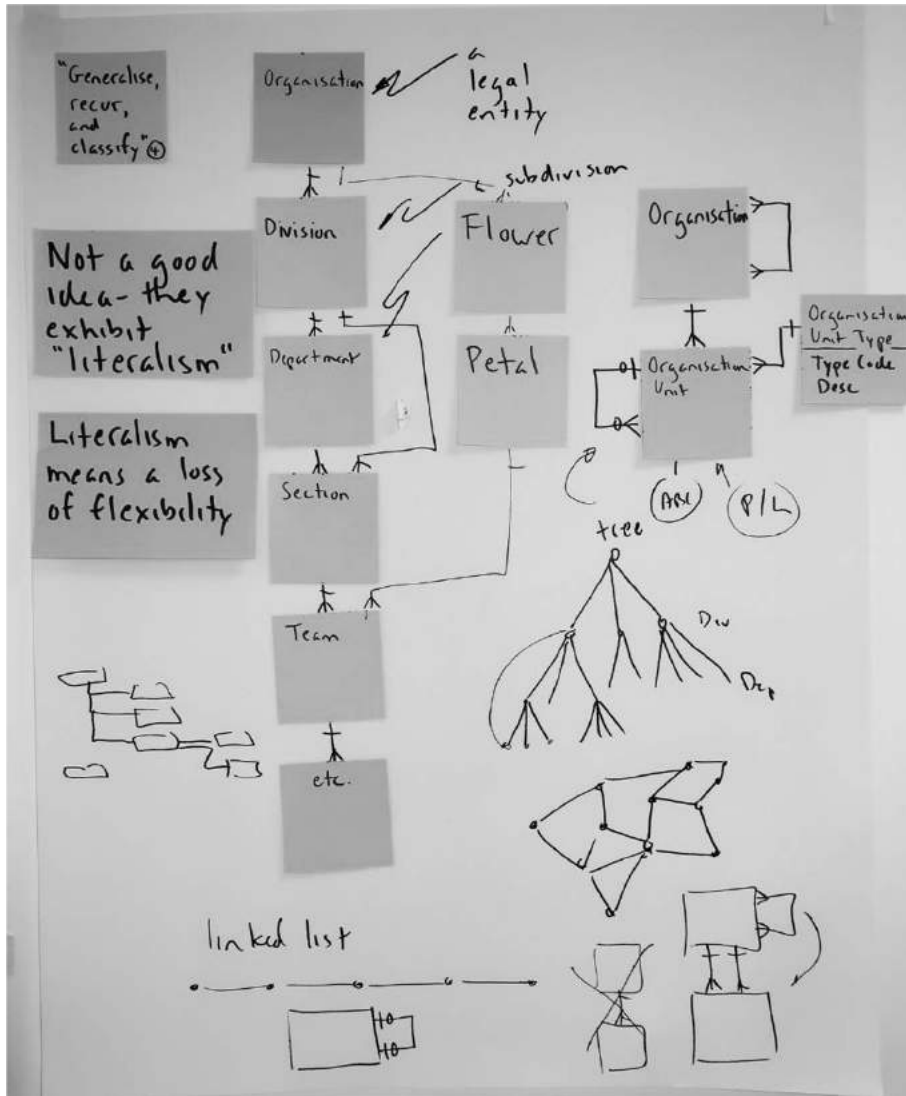 "Generalise,
recur,
and
classify" ④
Organisation
a
legal
entity
subdivision
Division
Flower
Organisation
Not a good
idea- they
exhibit
"literalism"
Department
Petal
Organisation
Unit
Organisation
Unit Type
Type Code
Desc
Literalism
means a loss
of flexibility
Section
P/L
tree
Team
Div
Dep
etc.
linked list